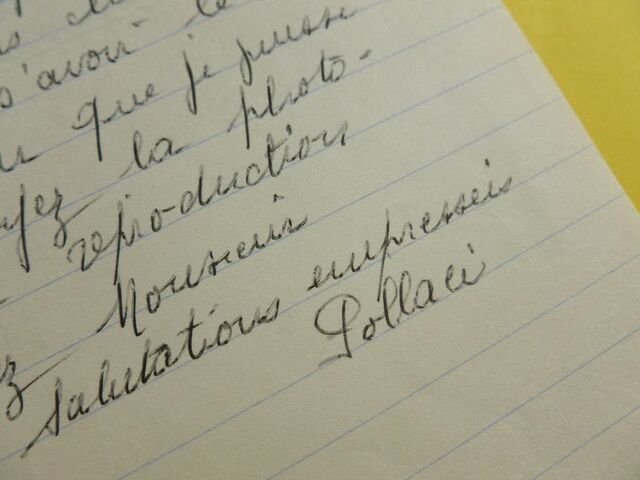 s'avoir le
que je puisse
la photo-
reproduction
Monsieur
salutations empressés
Pollaci